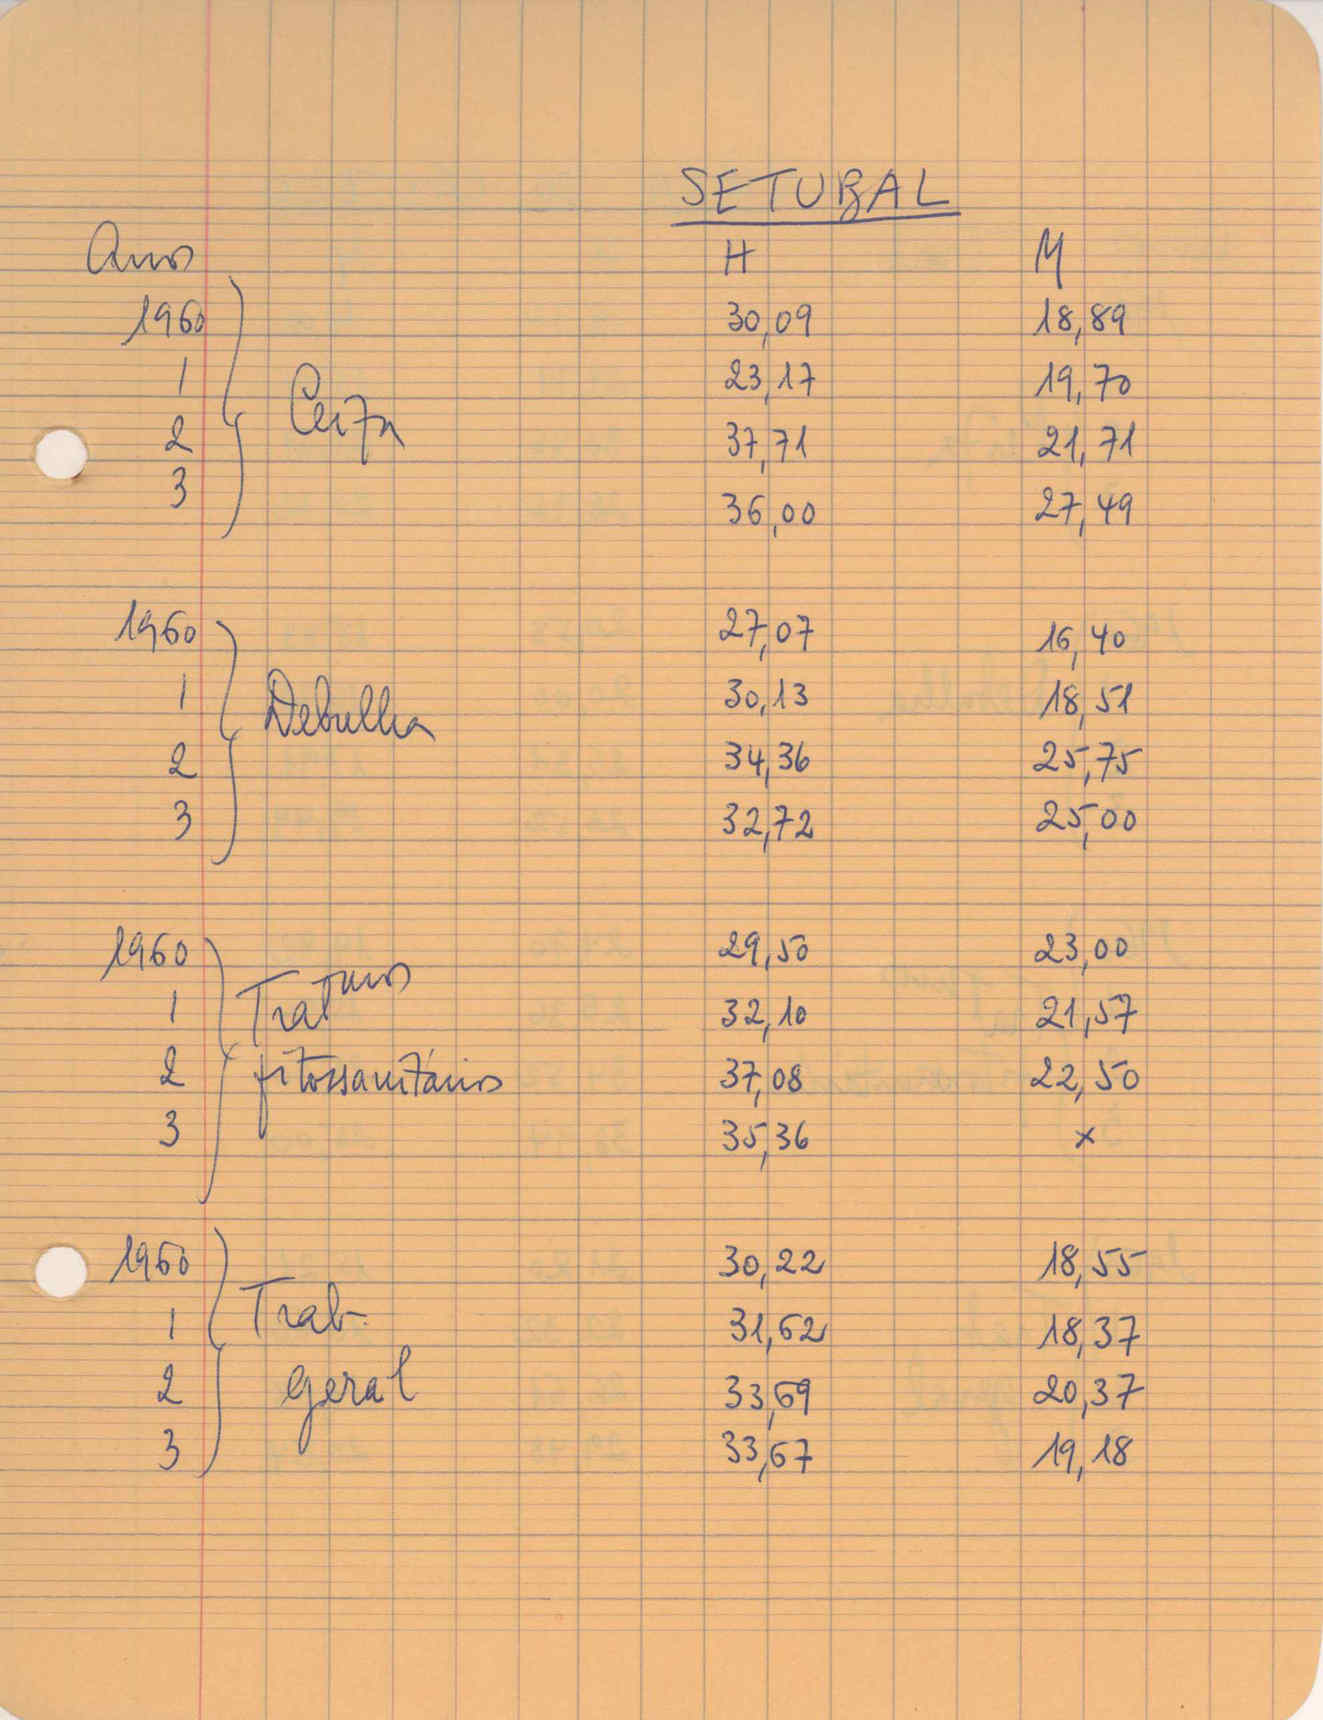 SETUBAL
Anos H M
1960 30,09 18,89
1 23,17 19,70
Ceifa
2 37,71 21,71
3 36,00 27,49
1960 27,07 16,40
1 30,13 18,51
Debulha
2 34,36 25,75
3 32,72 25,00
1960 29,50 23,00
1 Tratos 32,10 21,57
2 fitossanitários 37,08 22,50
3 35,36 x
1960 30,22 18,55
1 Trab. 31,62 18,37
2 geral 33,69 20,37
3 33,67 19,18